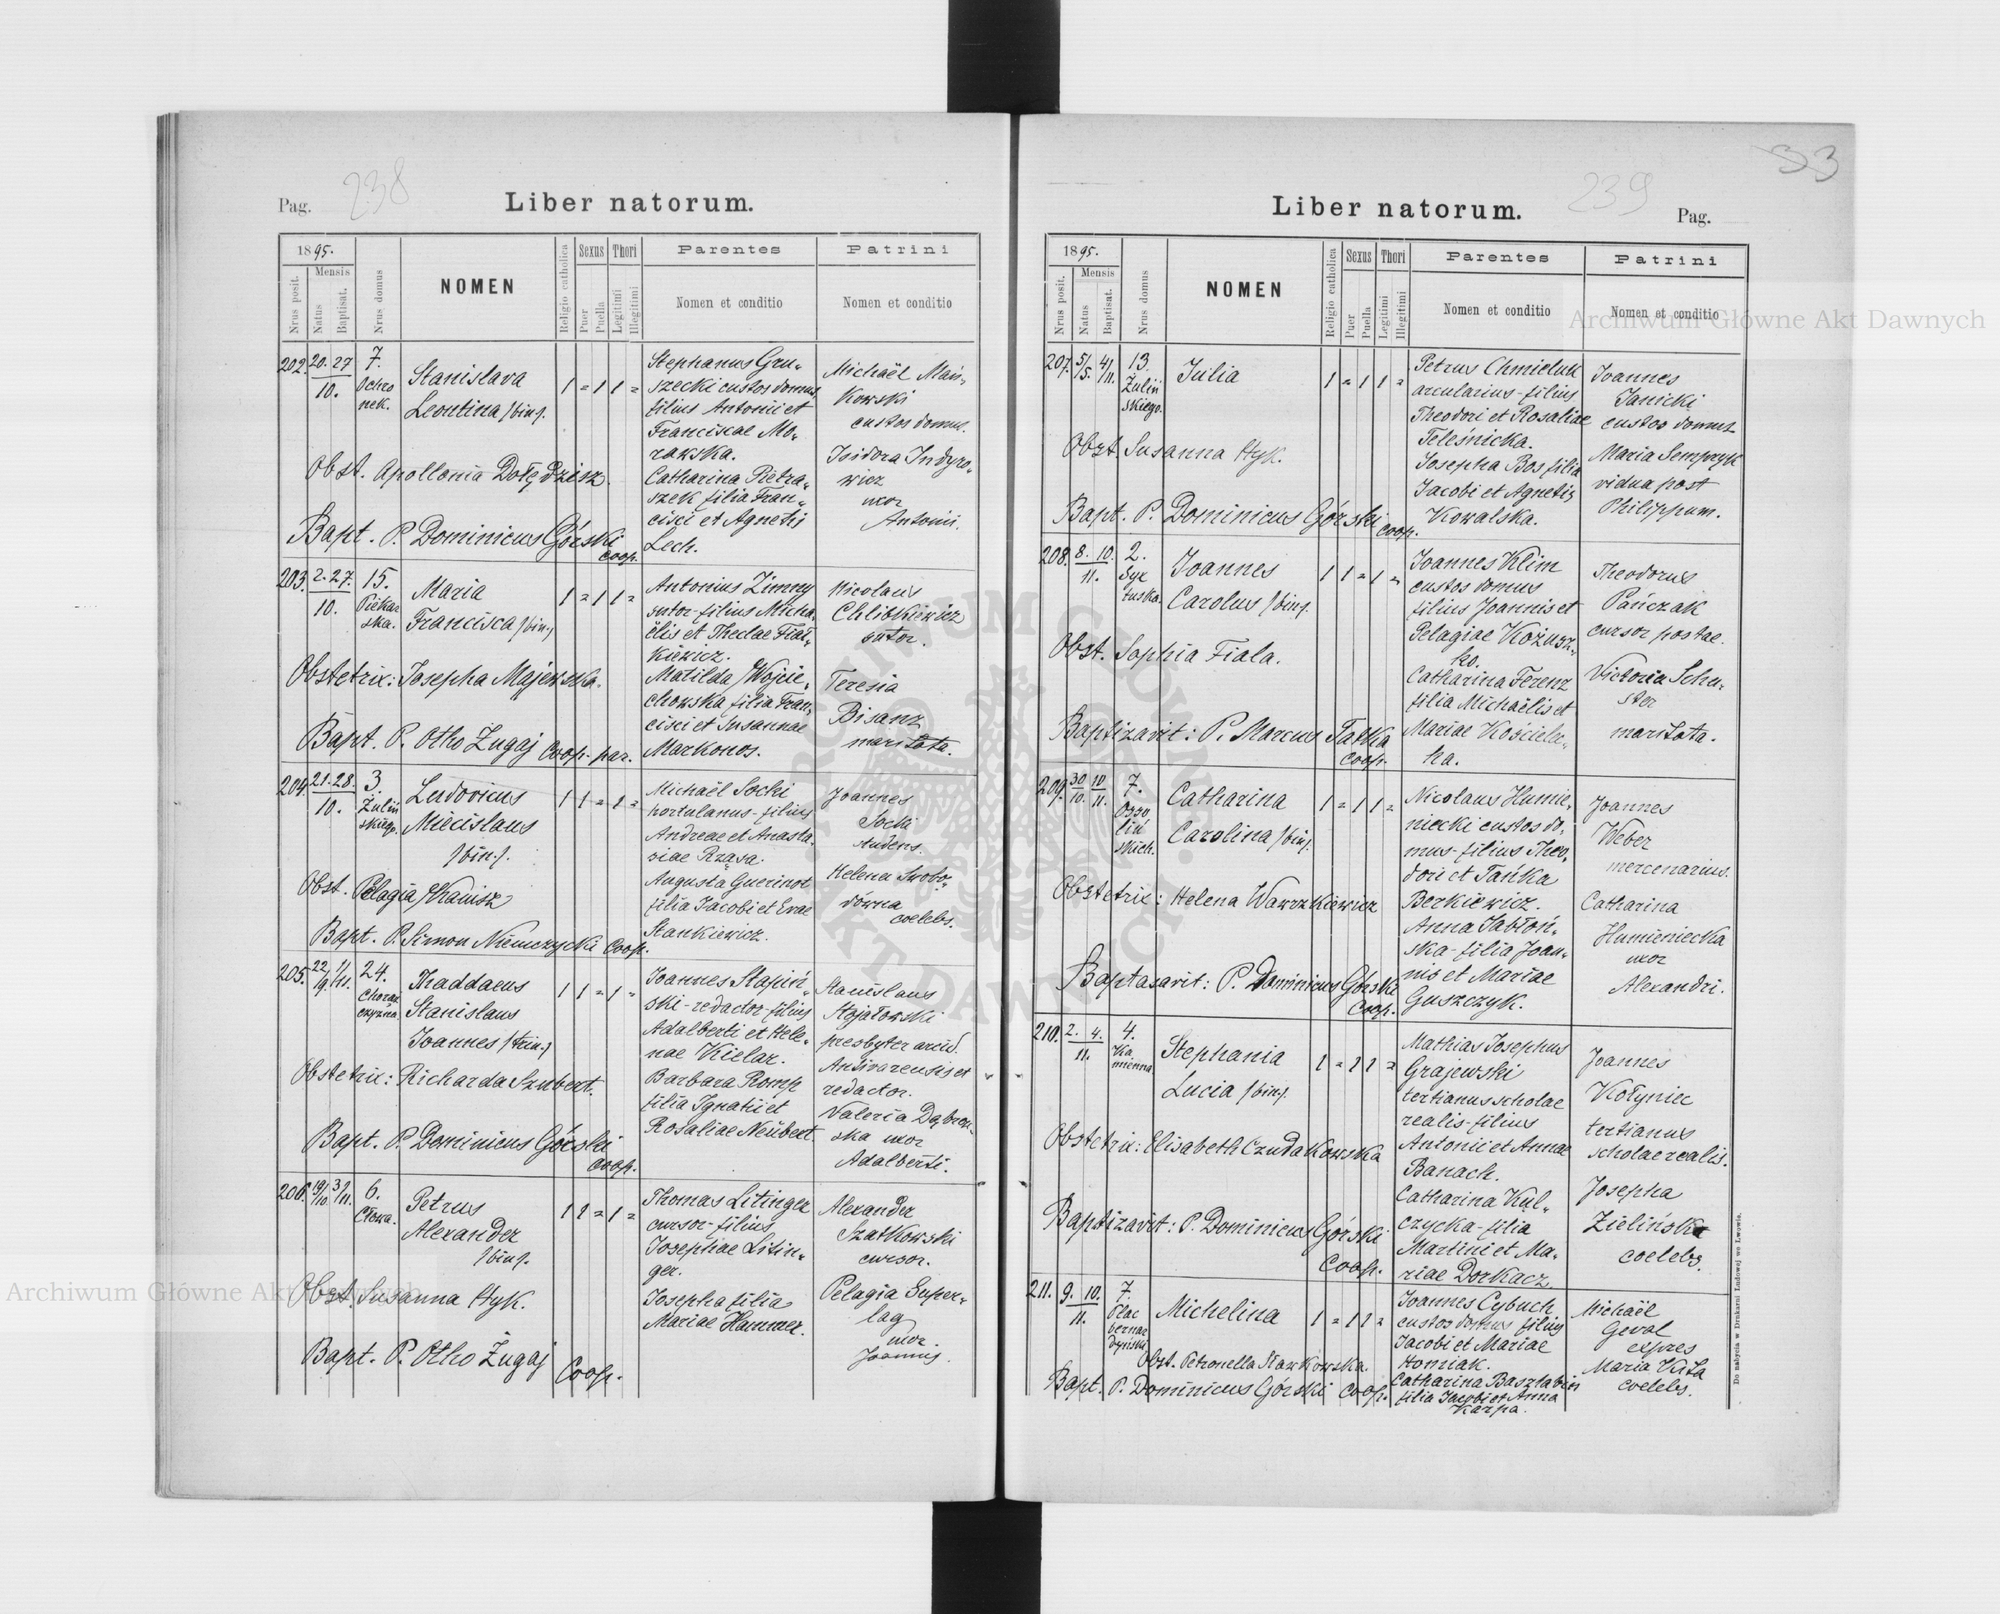 33
238
Pag.
Liber natorum.
1895.
Nrus posit.
Mensis
Natus
Baptisat.
Nrus domus
NOMEN
Religio catholica
Sexus
Puer
Puella
Thori
Legitimi
Illegitimi
Parentes
Nomen et conditio
Patrini
Nomen et conditio
202. 20. 27 / 10.
7.
Ochro
nek.
Stanislava
Leontina /bin/.
1 = 1 1 =
Stephanus Gru-
szecki custos domus,
filius Antonii et
Franciscae Mo-
rawska.
Catharina Pietra-
szek filia Fran-
cisci et Agnetis
Lech.
Michaël Mań-
kowski
custos domus.
Isidora Indyro-
wicz
uxor
Antonii.
Obst. Apollonia Dołędzisz.
Bapt. P. Dominicus Górski
coop.
203. 2. 27. / 10.
15.
Piekar
ska.
Maria
Francisca /bin./
1 = 1 1 =
Antonius Zimny
sutor-filius Micha-
ëlis et Theclae Fiał-
kiewicz.
Matilda Wojcie-
chowska filia Fran-
cisci et Susannae
Markonos.
Nicolaus
Chlibkiewicz
sutor.
Teresia
Bisanz
maritata.
Obstetrix: Josepha Majewska.
Bapt. P. Otho Żugaj Coop. par.
204. 21. 28. / 10.
3.
Żuliń
skiego.
Ludovicus
Miecislaus
/bin./.
1 1 = 1 =
Michaël Socki
hortulanus-filius
Andreae et Anasta-
siae Rząsa.
Augusta Guerinot
filia Jacobi et Evae
Stankiewicz.
Joannes
Socki
studens.
Helena Swobo-
dówna
coelebs.
Obst. Pelagia Kanisz
Bapt. P. Simon Niemczycki Coop.
205. 22/9. 1/11.
24.
Chorąż
czyzna.
Thaddaeus
Stanislaus
Joannes /trin./
1 1 = 1 =
Joannes Stapiń-
ski-redactor-filius
Adalberti et Hele-
nae Kielar.
Barbara Romp
filia Ignatii et
Rosaliae Neübert.
Stanislaus
Stojałowski
presbyter arcid.
Antivarensis et
redactor.
Valeria Dąbrow-
ska uxor
Adalberti.
Obstetrix: Richarda Szubert.
Bapt. P. Dominicus Górski
coop.
206. 19/10. 3/11.
6.
Cłowa.
Petrus
Alexander
/bin/.
1 1 = 1 =
Thomas Litinger
cursor-filius
Josephae Litin-
ger.
Josepha filia
Mariae Hammer.
Alexander
Szatkowski
cursor.
Pelagia Super-
lag
uxor
Joannis.
Obst. Susanna Hyk.
Bapt. P. Otho Żugaj Coop.
239
Liber natorum.
Pag.
1895.
Nrus posit.
Mensis
Natus
Baptisat.
Nrus domus
NOMEN
Religio catholica
Sexus
Puer
Puella
Thori
Legitimi
Illegitimi
Parentes
Nomen et conditio
Patrini
Nomen et conditio
207. 5/5. 4/11.
13.
Żuliń
skiego.
Julia
1 = 1 1 =
Petrus Chmieluk
arcularius-filius
Theodori et Rosaliae
Teleśnicka.
Josepha Bos filia
Jacobi et Agnetis
Kowalska.
Joannes
Janicki
custos domus
Maria Sempryk
vidua post
Philippum.
Obst. Susanna Hyk.
Bapt. P. Dominicus Górski coop.
208. 8. 10. / 11.
2.
Syx
tuska.
Joannes
Carolus /bin/.
1 1 = 1 =
Joannes Klim
custos domus
filius Joannis et
Pelagiae Kożusz-
ko.
Catharina Ferenz
filia Michaëlis et
Mariae Kościele-
ka.
Theodorus
Pańczak
cursor postae.
Victoria Schu-
ster
maritata.
Obst. Sophia Fiala.
Baptizavit: P. Marcus Tatka
Coop.
209. 30/10. 10/11.
7.
Osso
liń
skich.
Catharina
Carolina /bin/.
1 = 1 1 =
Nicolaus Humie-
niecki custos do-
mus-filius Theo-
dori et Tańka
Berkiewicz.
Anna Jabłoń-
ska-filia Joan-
nis et Mariae
Guszczyk.
Joannes
Weber
mercenarius.
Catharina
Humieniecka
uxor
Alexandri.
Obstetrix: Helena Wawrzkiewicz
Baptasavit: P. Dominicus Górski
Coop.
210. 2. 4. / 11.
4.
Ka
mienna
Stephania
Lucia /bin/.
1 = 1 1 =
Mathias Josephus
Grajewski
tertianus scholae
realis-filius
Antonii et Annae
Banach.
Catharina Kul-
czycka-filia
Martini et Ma-
riae Dorkacz.
Joannes
Kołyniec
tertianus
scholae realis.
Josepha
Zielińska
coelebs.
Obstetrix: Elisabeth Czudakowska
Baptizavit: P. Dominicus Górski
Coop.
211. 9. 10. / 11.
7.
Plac
bernar
dyński
Michelina
1 = 1 1 =
Joannes Cybuch
custos domus filius
Jacobi et Mariae
Homiak.
Catharina Basztabin
filia Jacobi et Anna
Karpa.
Michaël
Geval
expres
Maria Kita
coelebs.
Obst. Petronella Sławkowska.
Bapt. P. Dominicus Górski Coop.
Do nabycia w Drukarni Ludowej we Lwowie.
Archiwum Główne Akt Dawnych
Archiwum Główne Akt Dawnych
ARCHIWUM GŁÓWNE AKT DAWNYCH